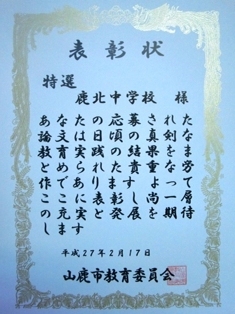 表彰状
特選
鹿北中学校 様
あなたの応募された
論文は日頃の真剣な
教育実践の結果をま
とめられた貴重な労
作でありますよって
ここに表彰し尚一層
の充実と発展を期待
します
平成27年2月17日
山鹿市教育委員会